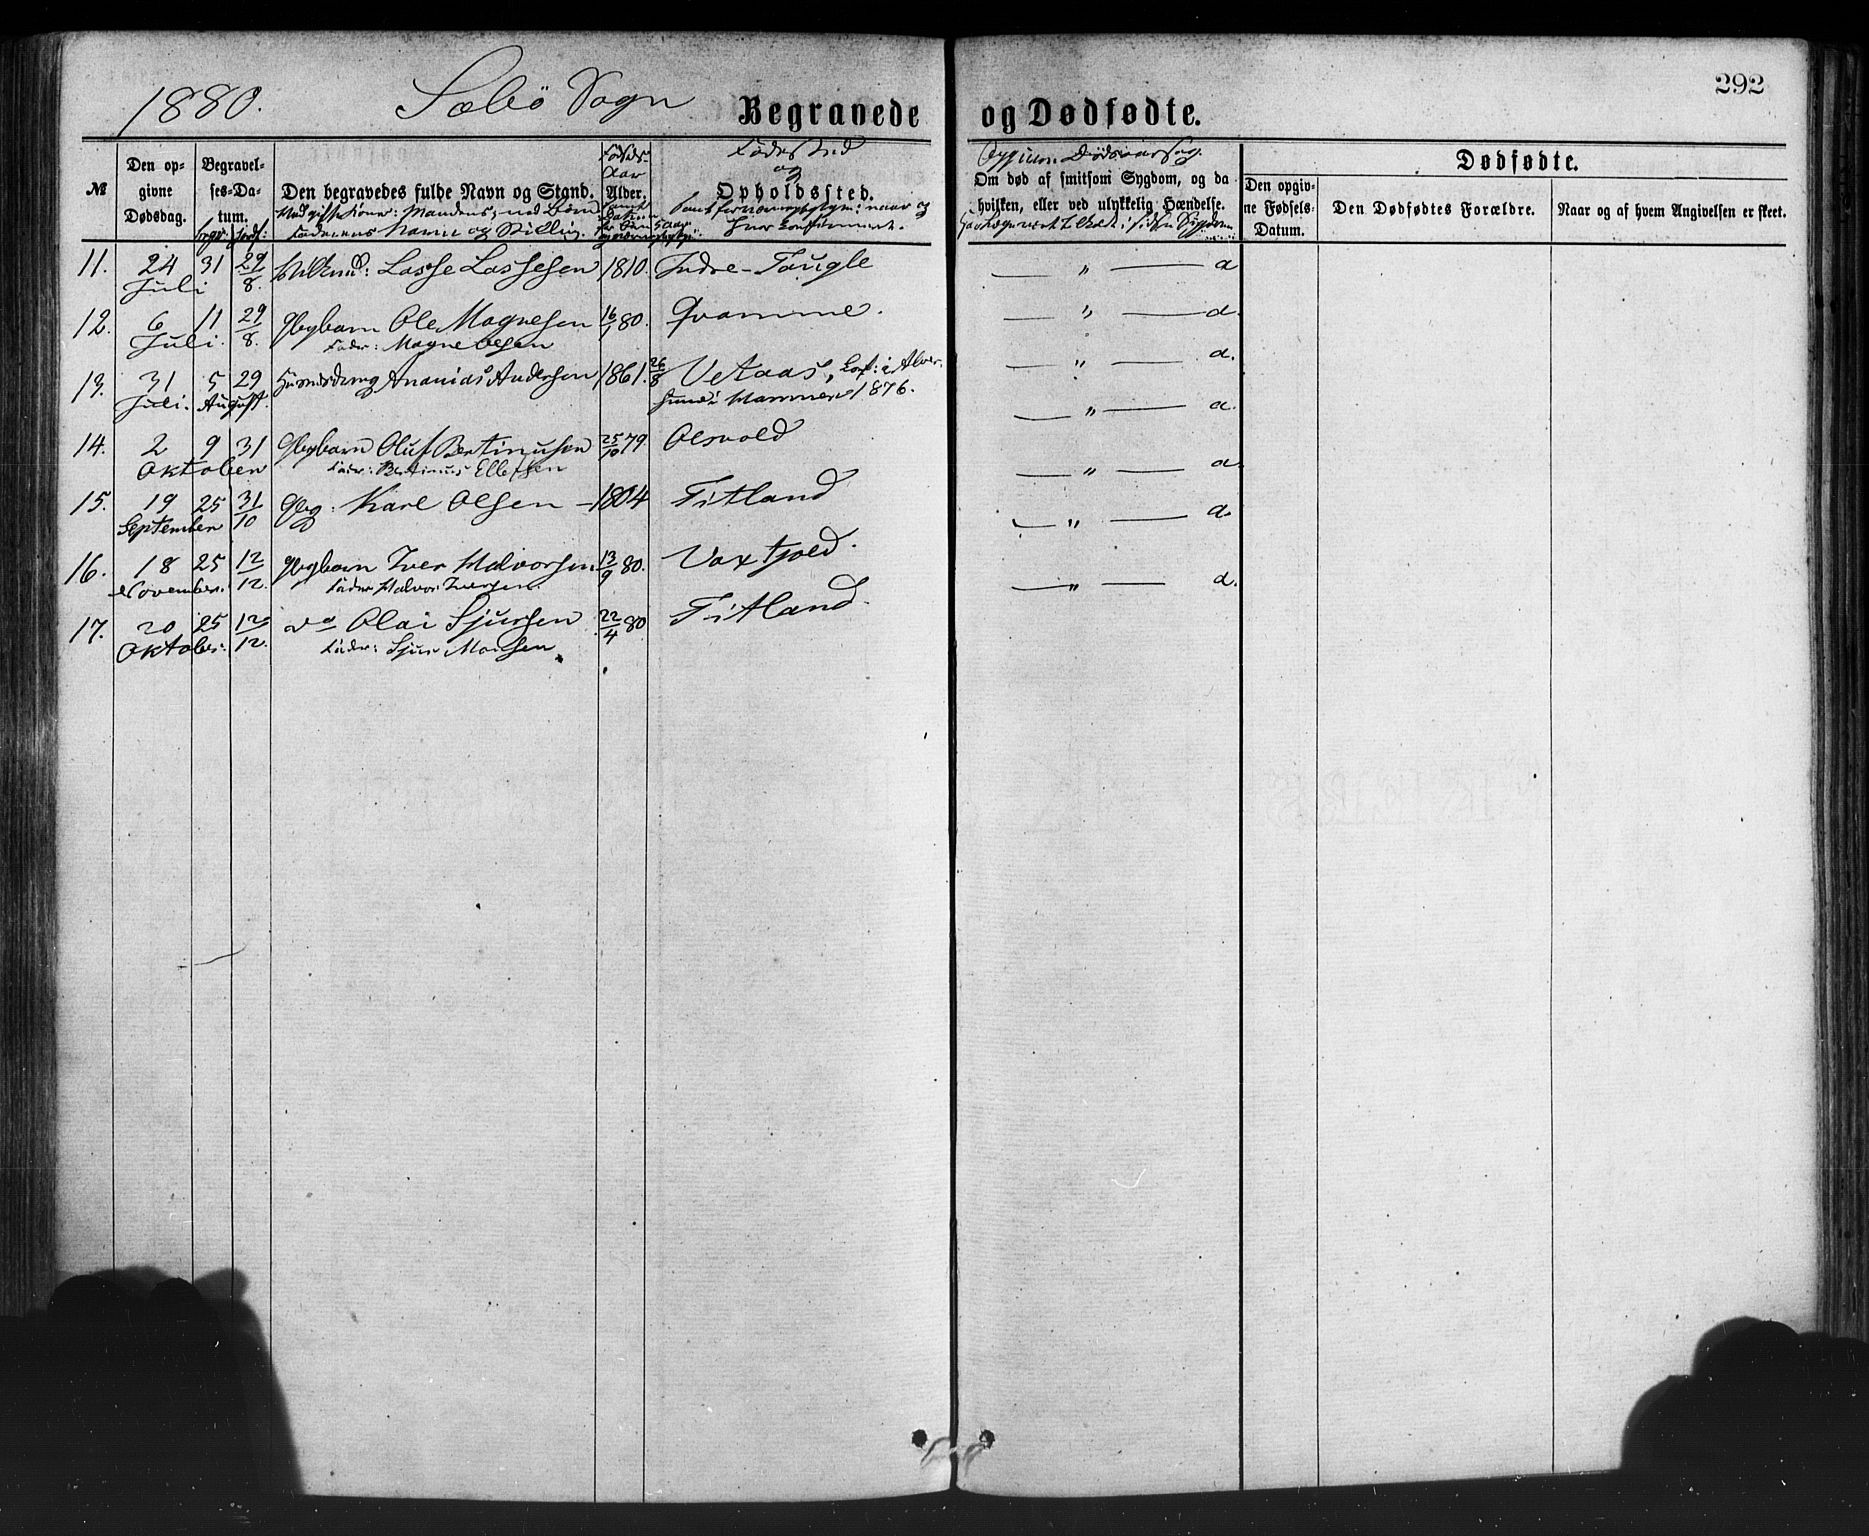 292
1880. Sæbö Sogn
Begravede og Dødfødte.
№
Den opgivne Dødsdag.
Begravelses-Datum.
Den begravedes fulde Navn og Stand.
Fødsels-Aar
Alder.
Fødested og
Opholdssted.
Om død af smitsom Sygdom, og da hvilken, eller ved ulykkelig Hændelse.
Dødfødte.
Den opgivne Fødsels-Datum.
Den Dødfødtes Forældre.
Naar og af hvem Angivelsen er skeet.
11. 24 Juli 31 29/8. Lasse Lassesen 1810. Indre-Taugle — " — a
12. 6 Juli 11 29/8. Glbgbarn Ole Magnesen 16/1 80. Qvamme. — " — a.
Fader: Magne Olsen
13. 31 Juli. 5 August. 29 Ananias Andersen 1861. 26/8 Vetaas, Conf: i Alver-
sund i Hammer 1876. — " — a.
14. 2 Oktober 9 31 Glbgbarn Oluf Bertinusen 25/10 79. Olsvold — " — a.
Fader: Bertinus Ellefsen
15. 19 September 25 31/10 Glbg: Karl Olsen – 1804 Titland — " — a.
16. 18 November. 25 12/12 Glbgbarn Iver Halvorsen 13/9 80. Vaxtjold. — " — a.
Fader Halvor Iversen.
17. 20 Oktober. 25 12/12. do Olai Sjursen 22/4 80 Titland. — " — a.
Fader: Sjur Monsen